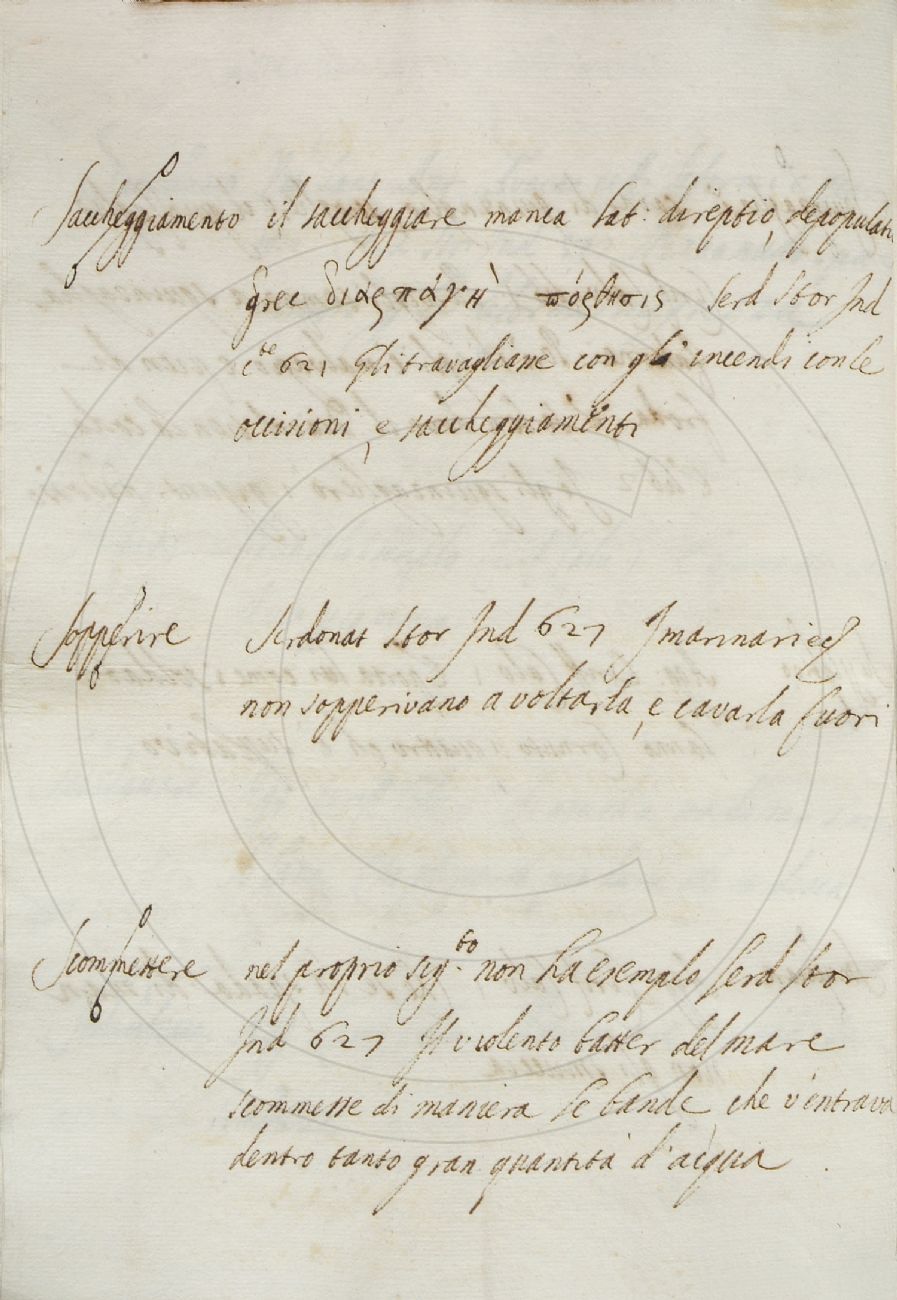 Saccheggiamento il saccheggiare manca Lat. direptio, depopulati
grec διαρπάγὴ πόρθησις Serd Stor Ind
c^te 621 Gli travagliasse con gli incendi con le
occisioni, e saccheggiamenti
Sopperire Serdonat Stor Ind 627 I marinari
non sopperivano a voltarla, e cavarla fuori
Scommettere nel proprio sig.^to non ha esemplo Serd Stor
Ind 627 Il violento batter del mare
scommesse di maniera le bande che v'entrava
dentro tanto gran quantità d'acqua